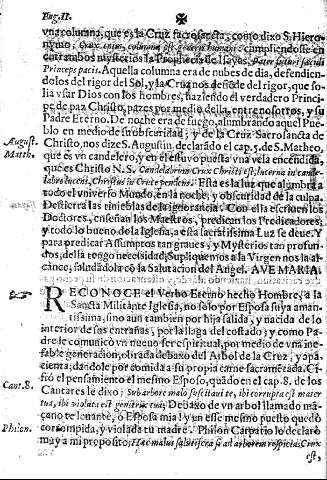 Eug. II. ✠
vna columna, que es la Cruz sacrosancta, como dixo S. Hiero-
nymo: Crux enim columna est generis humani: cumpliendose en
entrambos mysterios la Prophecia de Isayas. Pater futuri saeculi
Princeps pacis. Aquella columna era de nubes de dia, defendien-
dolos del rigor del Sol, y la Cruz nos defiende del rigor, que so-
lia vsar Dios con los hombres, haziendo el verdadero Princi-
pe de paz Christo, pazes por medio della, entre nosotros, y su
Padre Eterno. De noche era de fuego, alumbrando aquel Pue-
blo en medio de su obscuridad; y de la Cruz Sacrosancta de
August. Christo, nos dize S. Augustin, declarādo el cap. 5. de S. Matheo,
Matth. que es vn candelero, y en el estuvo puesta vna vela encendida,
que es Christo N. S. Candelabrum Crux Christi est, lucerna in cande-
labro lucens, Christus in Cruce pendens. Esta es la luz que alumbra à
todo el vniverso Mundo, en la noche, y obscuridad de la culpa.
Destierra las tinieblas de la ignorancia. Con ella escriven los
Doctores, enseñan los Maestros, predican los Predicadores,
y todo lo bueno de la Iglesia, a esta sacratissima Luz se deve. Y
para predicar Assumptos tan graves, y Mysterios tan profun-
dos, della tengo necessidad, Supliquemos a la Virgen nos la al-
cance, saludādola cō la Salutacion del Angel. AVE MARIA.
RECONOCE el Verbo Eterno hecho Hombre, a la
Sancta Militante Iglesia, no solo por Esposa suya aman-
tissima, sino aun tambien por hija salida, y nacida de lo
interior de sus entrañas, por la llaga del costado; y como Pa-
dre le comunicò vn nuevo ser espiritual, por medio de vna ine-
fable generacion, obrada debaxo del Arbol de la Cruz, y apa-
cienta, dandole por comida a su propia carne sacramētada. Ci-
Cant. 8. frò el pensamiento el mesmo Esposo, quādo en el cap. 8. de los
Cantares le dixo: Sub arbore malo suscitavi te, ibi corrupta est mater
tua, ibi violata est genitrix tua; Debaxo de vn arbol llamado mā-
çano te levantè, ò Esposa mia! y en esse mesmo puesto quedò
Philon. corrompida, y violada tu madre. Philon Carpacio lo declarò
muy a mi proposito; Haec malus salutifera si ad arborem respicias Crux
est,